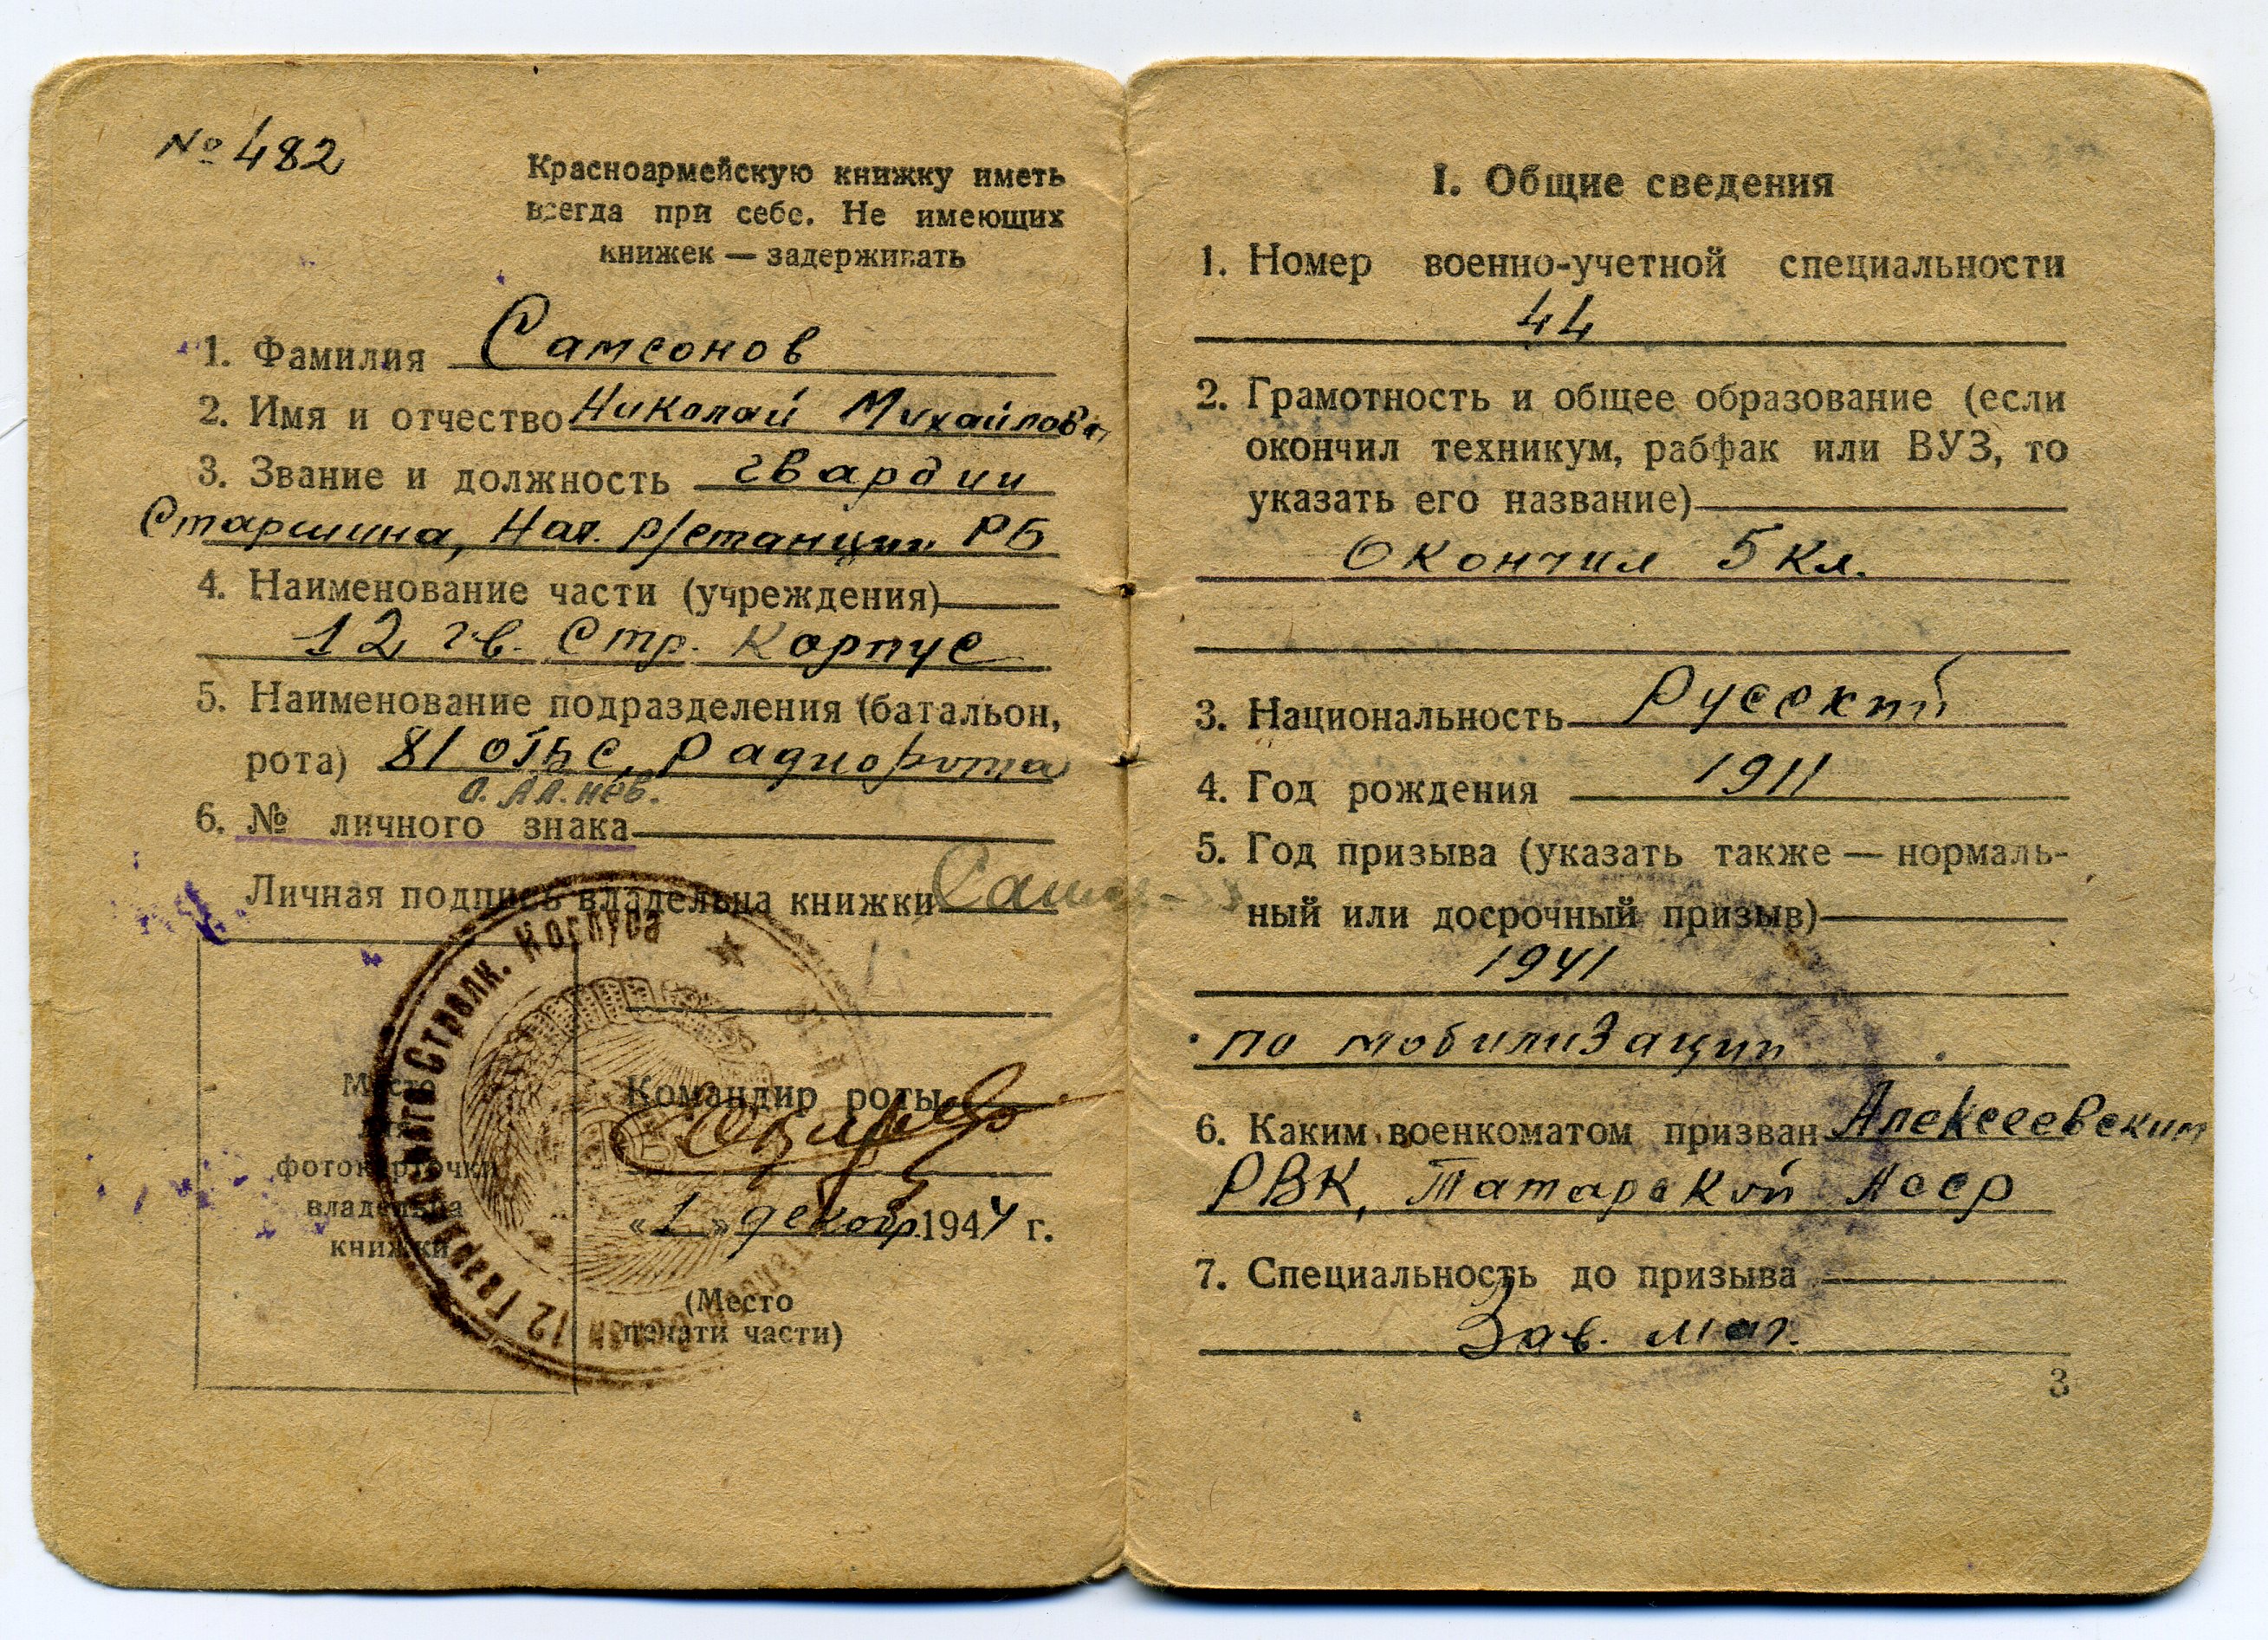 № 482
Красноармейскую книжку иметь
всегда при себе. Не имеющих
книжек — задерживать
1. Фамилия Самсонов
2. Имя и отчество Николай Михайлов
3. Звание и должность гвардии
Старшина, Нач. р/станции РБ
4. Наименование части (учреждения)
12 гв. Стр. Корпус
5. Наименование подразделения (батальон,
рота) 81 ОГБС, Радиорота
О. Ал. Нев.
6. № личного знака
Личная подпись владельца книжки
Место
фотокарточки
владельца
книжки
Командир роты
«1» декабр. 1944 г.
(Место
печати части)
12 Гвардейского Стрелк. Корпуса
I. Общие сведения
1. Номер военно-учетной специальности
44
2. Грамотность и общее образование (если
окончил техникум, рабфак или ВУЗ, то
указать его название)
Окончил 5 кл.
3. Национальность Русский
4. Год рождения 1911
5. Год призыва (указать также — нормаль-
ный или досрочный призыв)
1941
по мобилизации
6. Каким военкоматом призван Алексеевским
РВК, Татарской АССР
7. Специальность до призыва
Зав. маг.
3